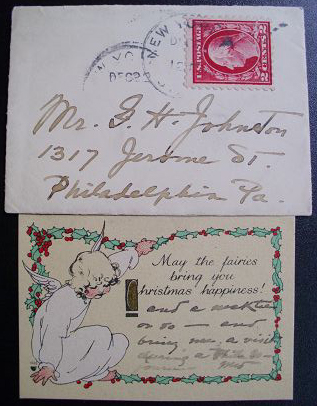 NEW YO
DEC 2
U.S. POSTAGE
2 CENTS 2
Mr. G. H. Johnston
1317 Jerome St.
Philadelphia Pa.
May the fairies
bring you
Christmas happiness!
and a
or so — and
bring me a visit
during a